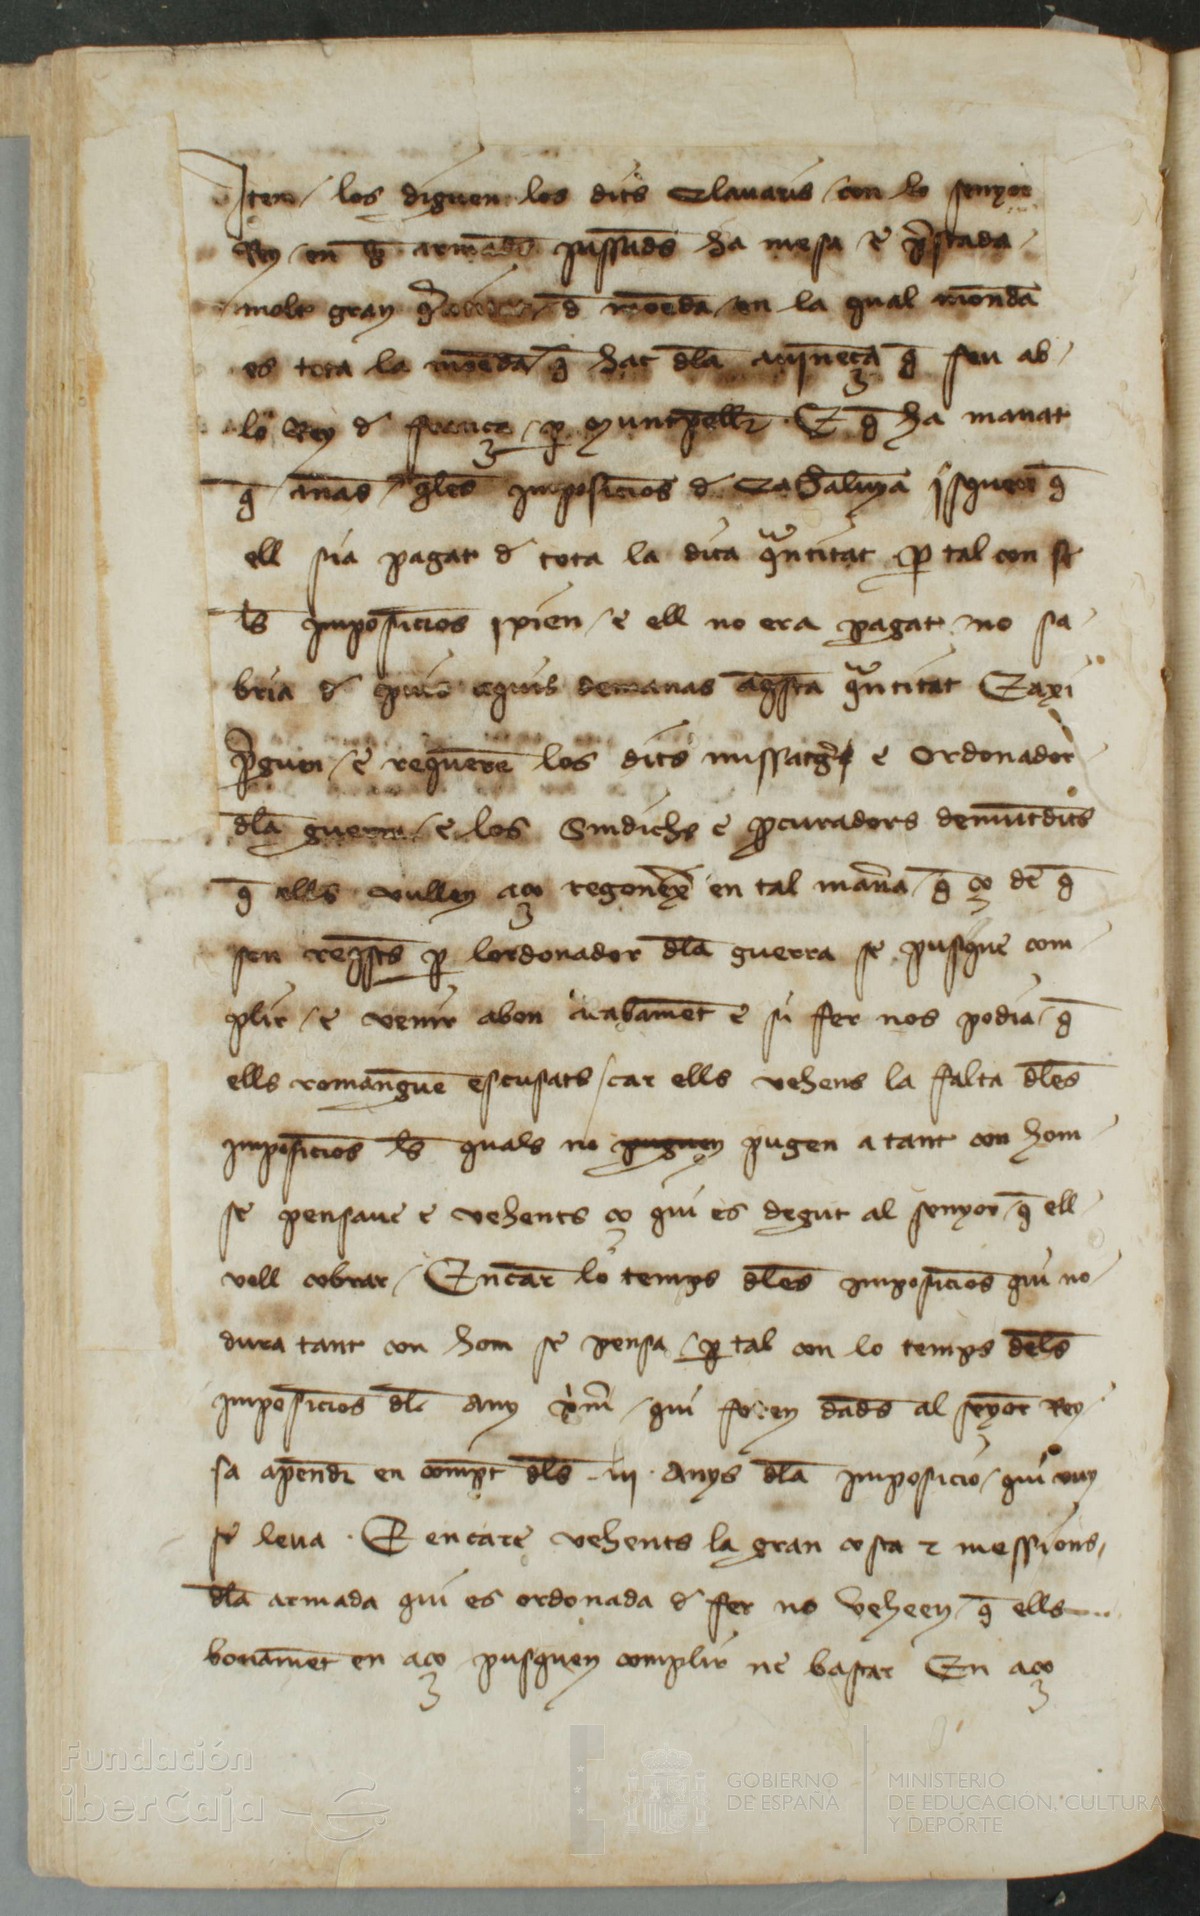 Item los diguen los dits Clauaris con lo senyor
Rey en ha mesa e p̄stada
molt gran d̄ moeda en la qual moneda
es tota la moeda q̄ hac dl̄a q̄ feu ab
lo Rey d̄ França p̱ Muntpell̄r E q̄ ha manat
q̄ imposicio̅s d̄ q̄
ell sia pagat d̄ tota la dita qua̅titat p̱ tal con si
ls̄ imposicio̅s e ell no era pagat no sa
bria d̄ demanas aq̄sta qua̅titat Eaxi
p̄guen e requere̅ los dits missatgēs e Ordonador
dl̄a guerra e los Sindichs e p̱curadors
q̄ ells vullen aço regone̅xe̅ en tal man̄a q̄ ço d̄ q̄
son req̄sts p̱ lordonador dl̄a guerra se pusque com
plir e venir abon acabame̅t e si fer nos podia q̄
ells romangue̅ escusats car ells vehens la falta dl̄es
imposicio̅s ls̄ quals no puguen pugen a tant con hom
se pensaue e vehents ço qui es degut al senyor q̄ ell
voll cobrar Encar̄ lo temps dl̄es imposicio̅s qui no
dura tant con hom se pensa p̱ tal con lo temps dels̄
imposicio̅s dl̄ Any p̄m̄ qui foren dads̄ al seyor Rey
sa apendr̄ en compt dls̄ .iij. Anys dl̄a imposicio qui vuy
se leua . E encare vehents la gran costa e messions
dl̄a armada qui es ordonada d̄ fer no veheen q̄ ells
boname̅t en aço pusquen complir ne bastar En aço
Fundación
iberCaja
GOBIERNO
DE ESPAÑA
MINISTERIO
DE EDUCACIÓN, CULTURA
Y DEPORTE